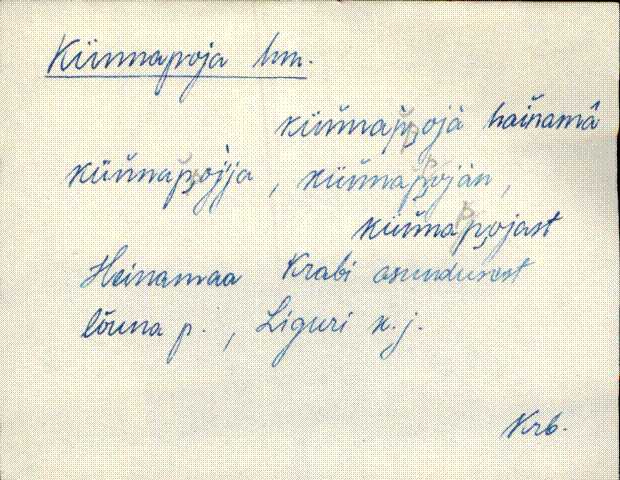 Künnapoja hm.
küńnap̀p̀ojà haińamā
küńnap̀p̀ojja, küńnap̀p̀ojàn,
küńnap̀p̀ojast
Heinamaa Krabi asundusest
lõuna p., Liguri k.j.
Krb.